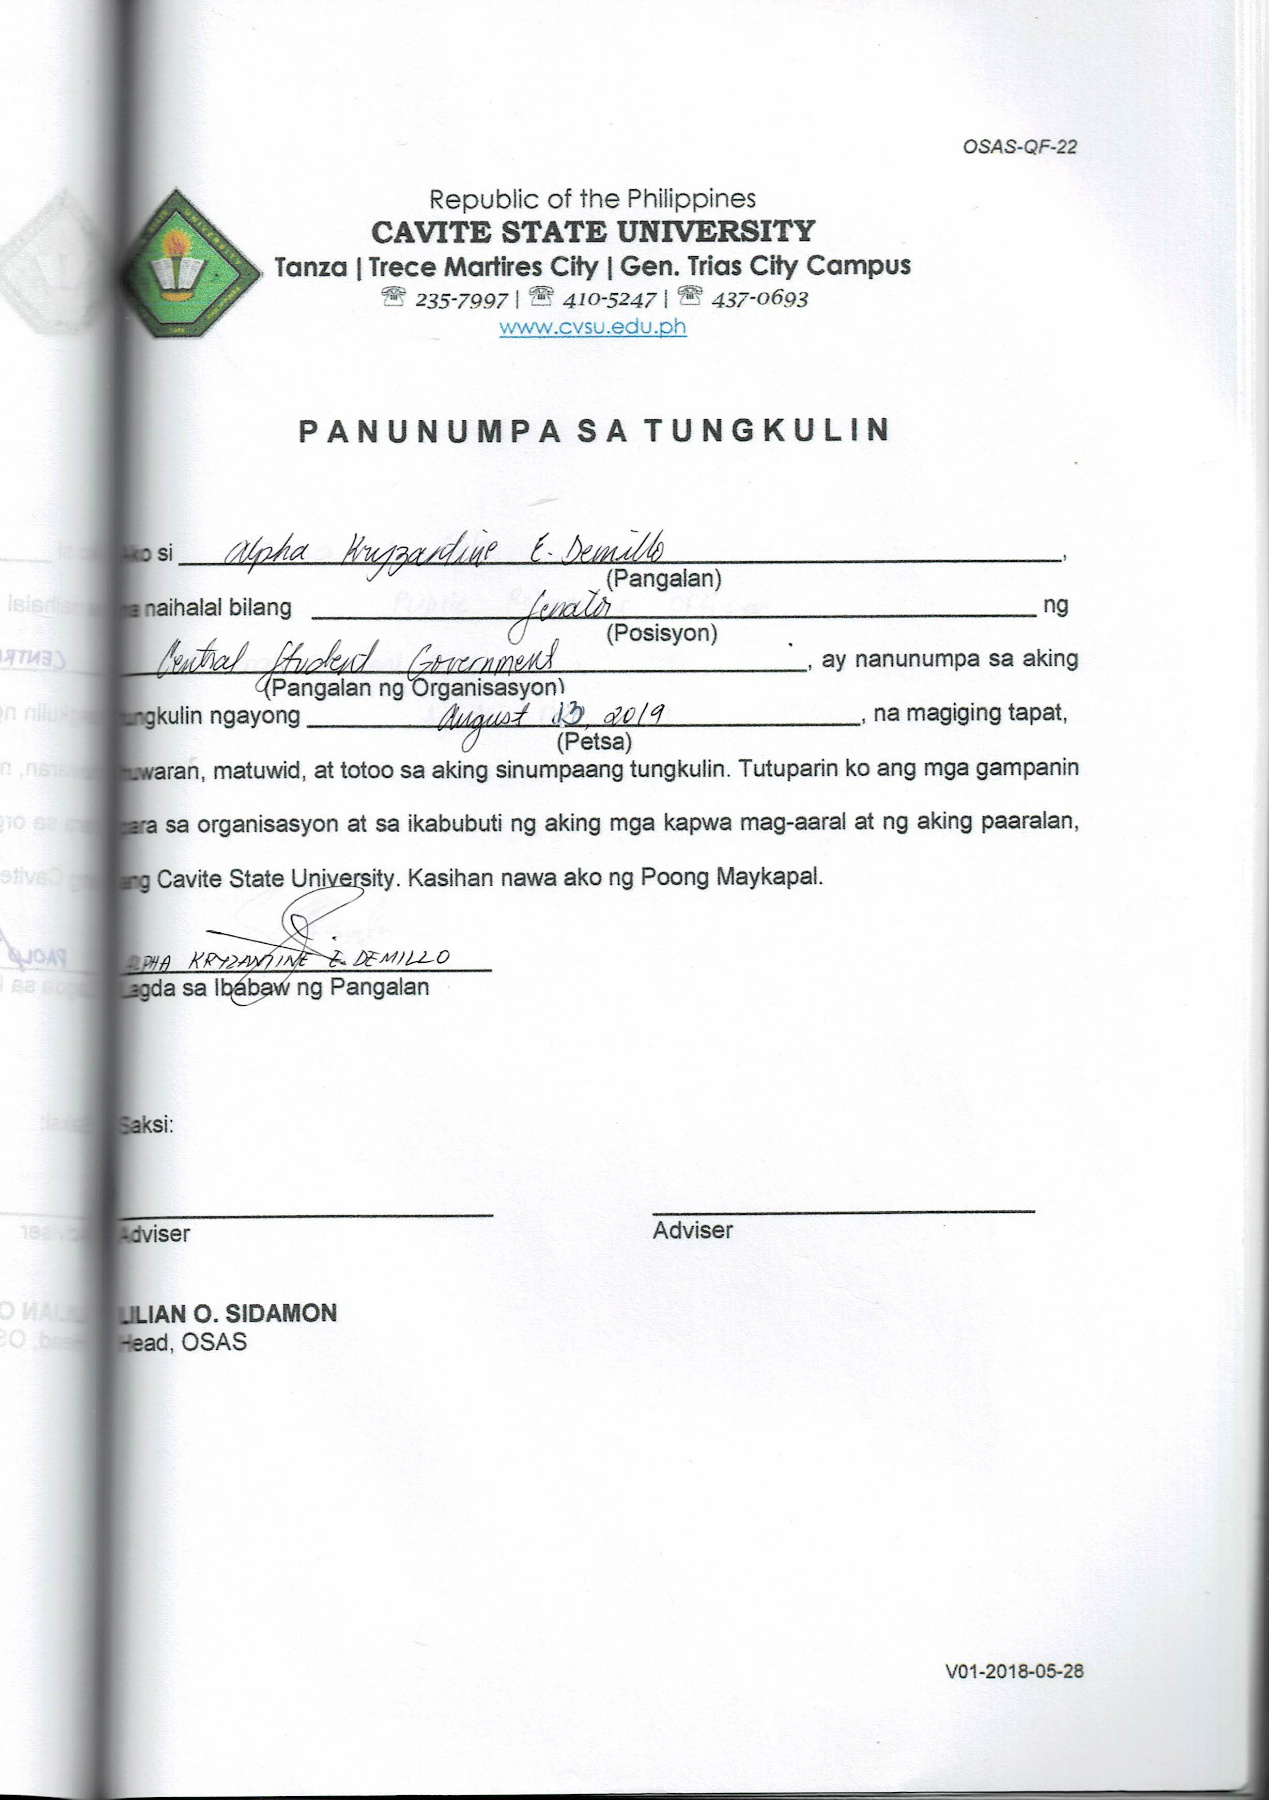 OSAS-QF-22
Republic of the Philippines
CAVITE STATE UNIVERSITY
Tanza | Trece Martires City | Gen. Trias City Campus
☏ 235-7997 | ☏ 410-5247 | ☏ 437-0693
www.cvsu.edu.ph
PANUNUMPA SA TUNGKULIN
Ako si Alpha Kryzantine E. Demillo,
(Pangalan)
na naihalal bilang Senator ng
(Posisyon)
Central Student Government, ay nanunumpa sa aking
(Pangalan ng Organisasyon)
tungkulin ngayong August 13, 2019, na magiging tapat,
(Petsa)
huwaran, matuwid, at totoo sa aking sinumpaang tungkulin. Tutuparin ko ang mga gampanin
para sa organisasyon at sa ikabubuti ng aking mga kapwa mag-aaral at ng aking paaralan,
ang Cavite State University. Kasihan nawa ako ng Poong Maykapal.
ALPHA KRYZANTINE E. DEMILLO
Lagda sa Ibabaw ng Pangalan
Saksi:
Adviser Adviser
LILIAN O. SIDAMON
Head, OSAS
V01-2018-05-28